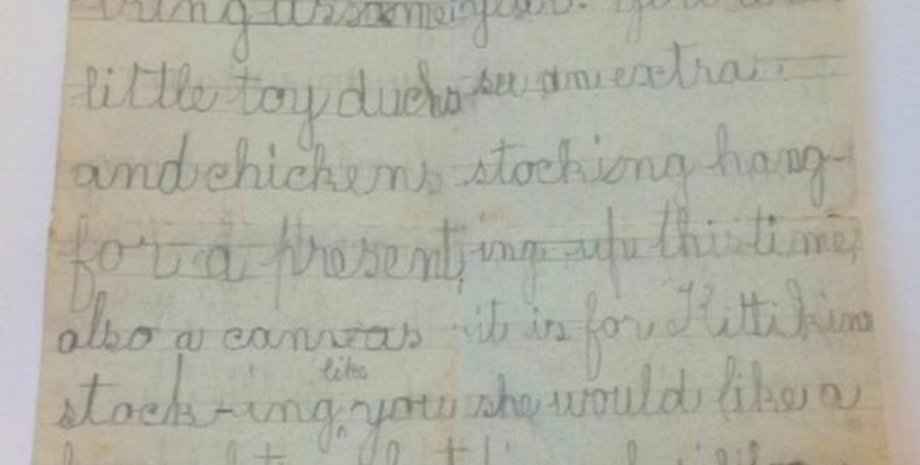 bring us some
little toy ducks
and chickens
for a present,
also a canvas
like
stock-ing, you
year. You
see an extra
stocking hang-
ing up this time,
it is for Kittikins
she would like a